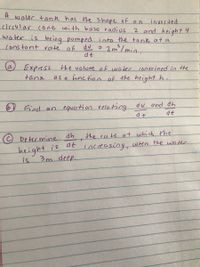 A water tank has the shape of an inverted
circular cone with base radius 2 and height 4
water is being pumped into the tank at a
constant rate of dv/dt = 2 m³/min.
(a) Express the volume of water contained in the
tank as a function of the height h.
(b) Find an equation relating dv/dt and dh/dt
(c) Determine dh/dt, the rate at which the
height is increasing, when the water
is 3m deep.